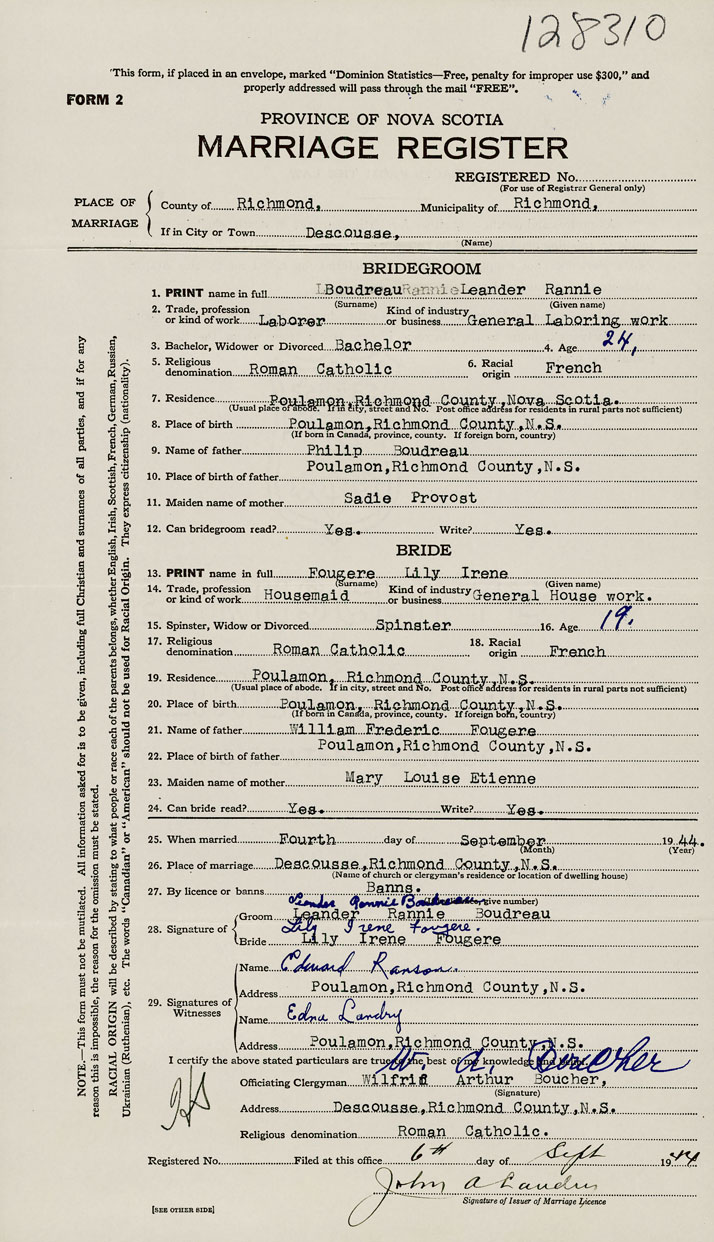 128310
"This form, if placed in an envelope, marked "Dominion Statistics—Free, penalty for improper use $300," and
properly addressed will pass through the mail "FREE".
FORM 2
PROVINCE OF NOVA SCOTIA
MARRIAGE REGISTER
REGISTERED No.
(For use of Registrar General only)
PLACE OF MARRIAGE
County of Richmond, Municipality of Richmond,
If in City or Town Descousse,
(Name)
BRIDEGROOM
1. PRINT name in full Boudreau Rannie Leander Rannie
(Surname) (Given name)
2. Trade, profession or kind of work Laborer Kind of industry or business General Laboring work
3. Bachelor, Widower or Divorced Bachelor 4. Age 24,
5. Religious denomination Roman Catholic 6. Racial origin French
7. Residence Poulamon, Richmond County, Nova Scotia.
(Usual place of abode. If in city, street and No. Post office address for residents in rural parts not sufficient)
8. Place of birth Poulamon, Richmond County, N.S.
(If born in Canada, province, county. If foreign born, country)
9. Name of father Philip Boudreau
10. Place of birth of father Poulamon, Richmond County, N.S.
11. Maiden name of mother Sadie Provost
12. Can bridegroom read? Yes. Write? Yes.
BRIDE
13. PRINT name in full Fougere Lily Irene
(Surname) (Given name)
14. Trade, profession or kind of work Housemaid Kind of industry or business General House work.
15. Spinster, Widow or Divorced Spinster 16. Age 19.
17. Religious denomination Roman Catholic 18. Racial origin French
19. Residence Poulamon, Richmond County, N.S.
(Usual place of abode. If in city, street and No. Post office address for residents in rural parts not sufficient)
20. Place of birth Poulamon, Richmond County, N.S.
(If born in Canada, province, county. If foreign born, country)
21. Name of father William Frederic Fougere
22. Place of birth of father Poulamon, Richmond County, N.S.
23. Maiden name of mother Mary Louise Etienne
24. Can bride read? Yes. Write? Yes.
25. When married Fourth day of September 1944.
(Month) (Year)
26. Place of marriage Descousse, Richmond County, N.S.
(Name of church or clergyman's residence or location of dwelling house)
27. By licence or banns Banns.
give number)
Leander Rannie Boudreau
28. Signature of Groom Leander Rannie Boudreau
Lily Irene Fougere.
Bride Lily Irene Fougere
29. Signatures of Witnesses
Name Edward Ranson.
Address Poulamon, Richmond County, N.S.
Name Edna Landry
Address Poulamon, Richmond County, N.S.
I certify the above stated particulars are true to the best of my knowledge and belief.
W. A. Boucher
Officiating Clergyman Wilfrid Arthur Boucher,
(Signature)
Address Descousse, Richmond County, N.S.
Religious denomination Roman Catholic.
Registered No. Filed at this office 6th day of Sept 1944
John A Landry
Signature of Issuer of Marriage Licence
[SEE OTHER SIDE]
NOTE.—This form must not be mutilated. All information asked for is to be given, including full Christian and surnames of all parties, and if for any
reason this is impossible, the reason for the omission must be stated.
RACIAL ORIGIN will be described by stating to what people or race each of the parents belongs, whether English, Irish, Scottish, French, German, Russian,
Ukrainian (Ruthenian), etc. The words "Canadian" or "American" should not be used for Racial Origin. They express citizenship (nationality).